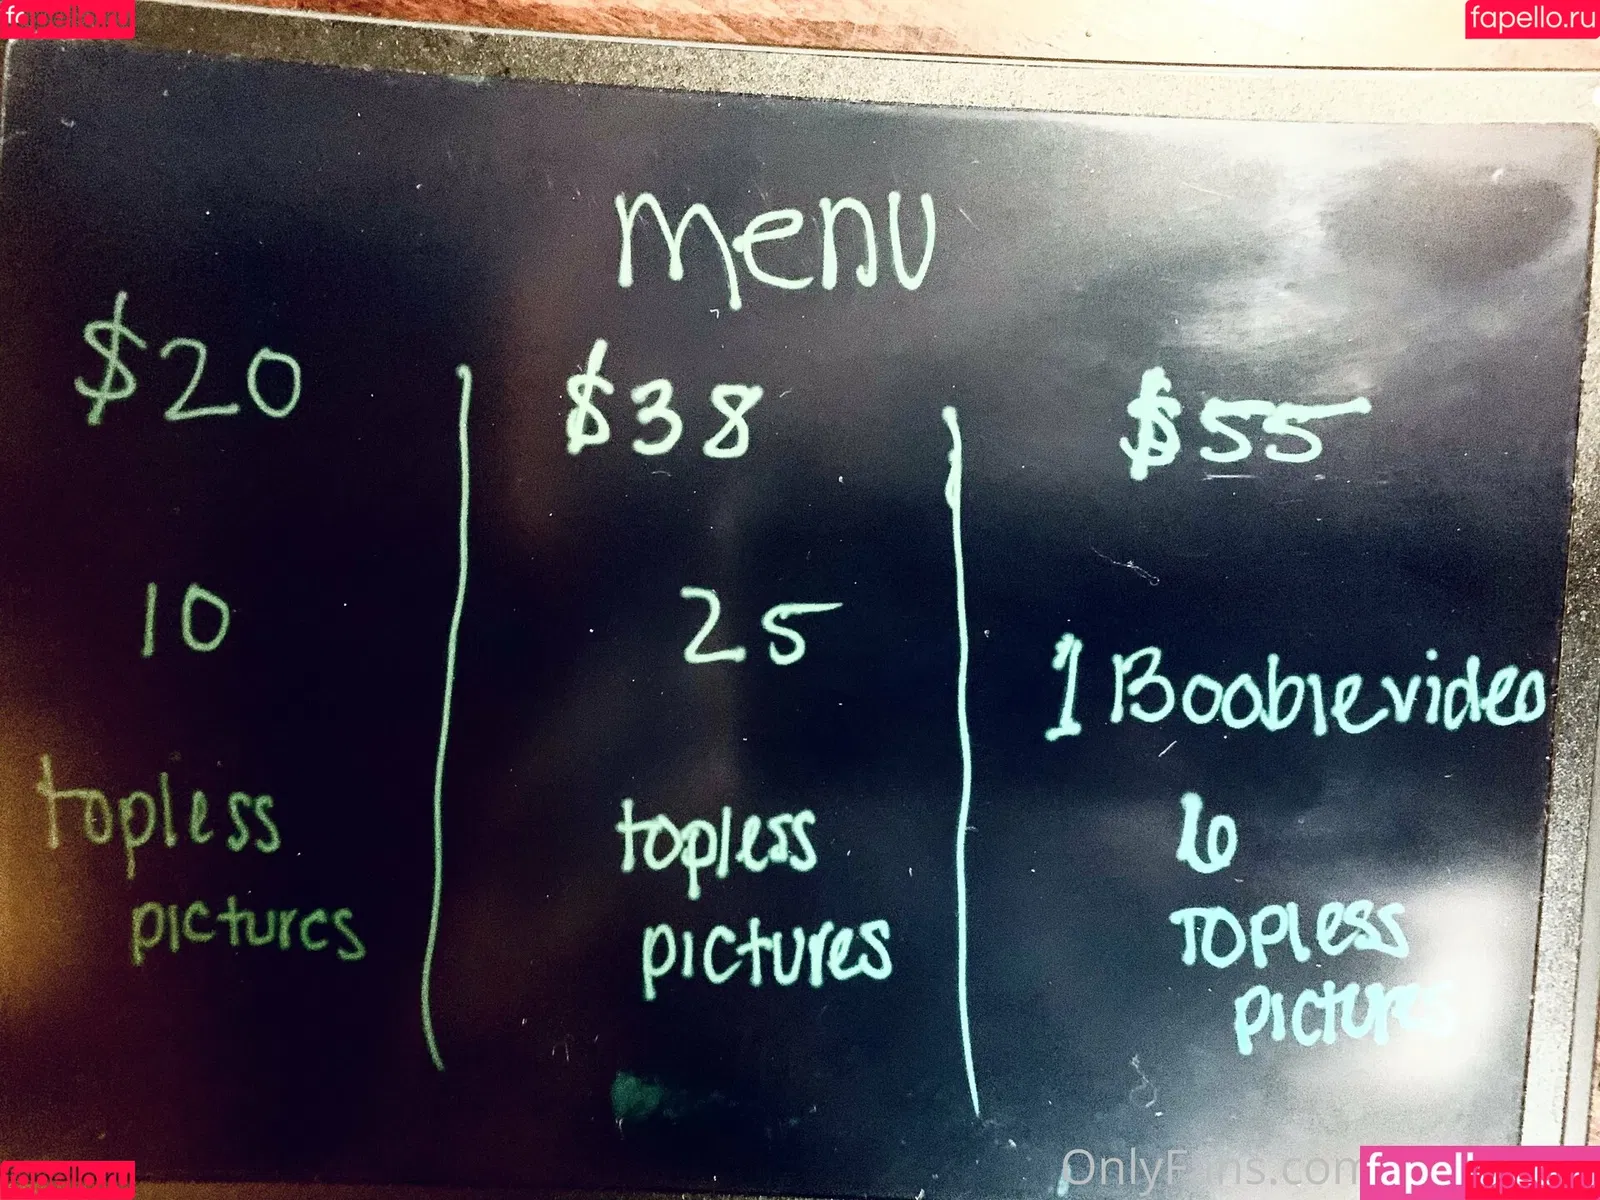 fapello.ru
fapello.ru
menu
$20
10
topless
pictures
$38
25
topless
pictures
$55
1 Boobievideo
6
TOPLess
pictures
fapello.ru
OnlyFans.com
fapell
fapello.ru